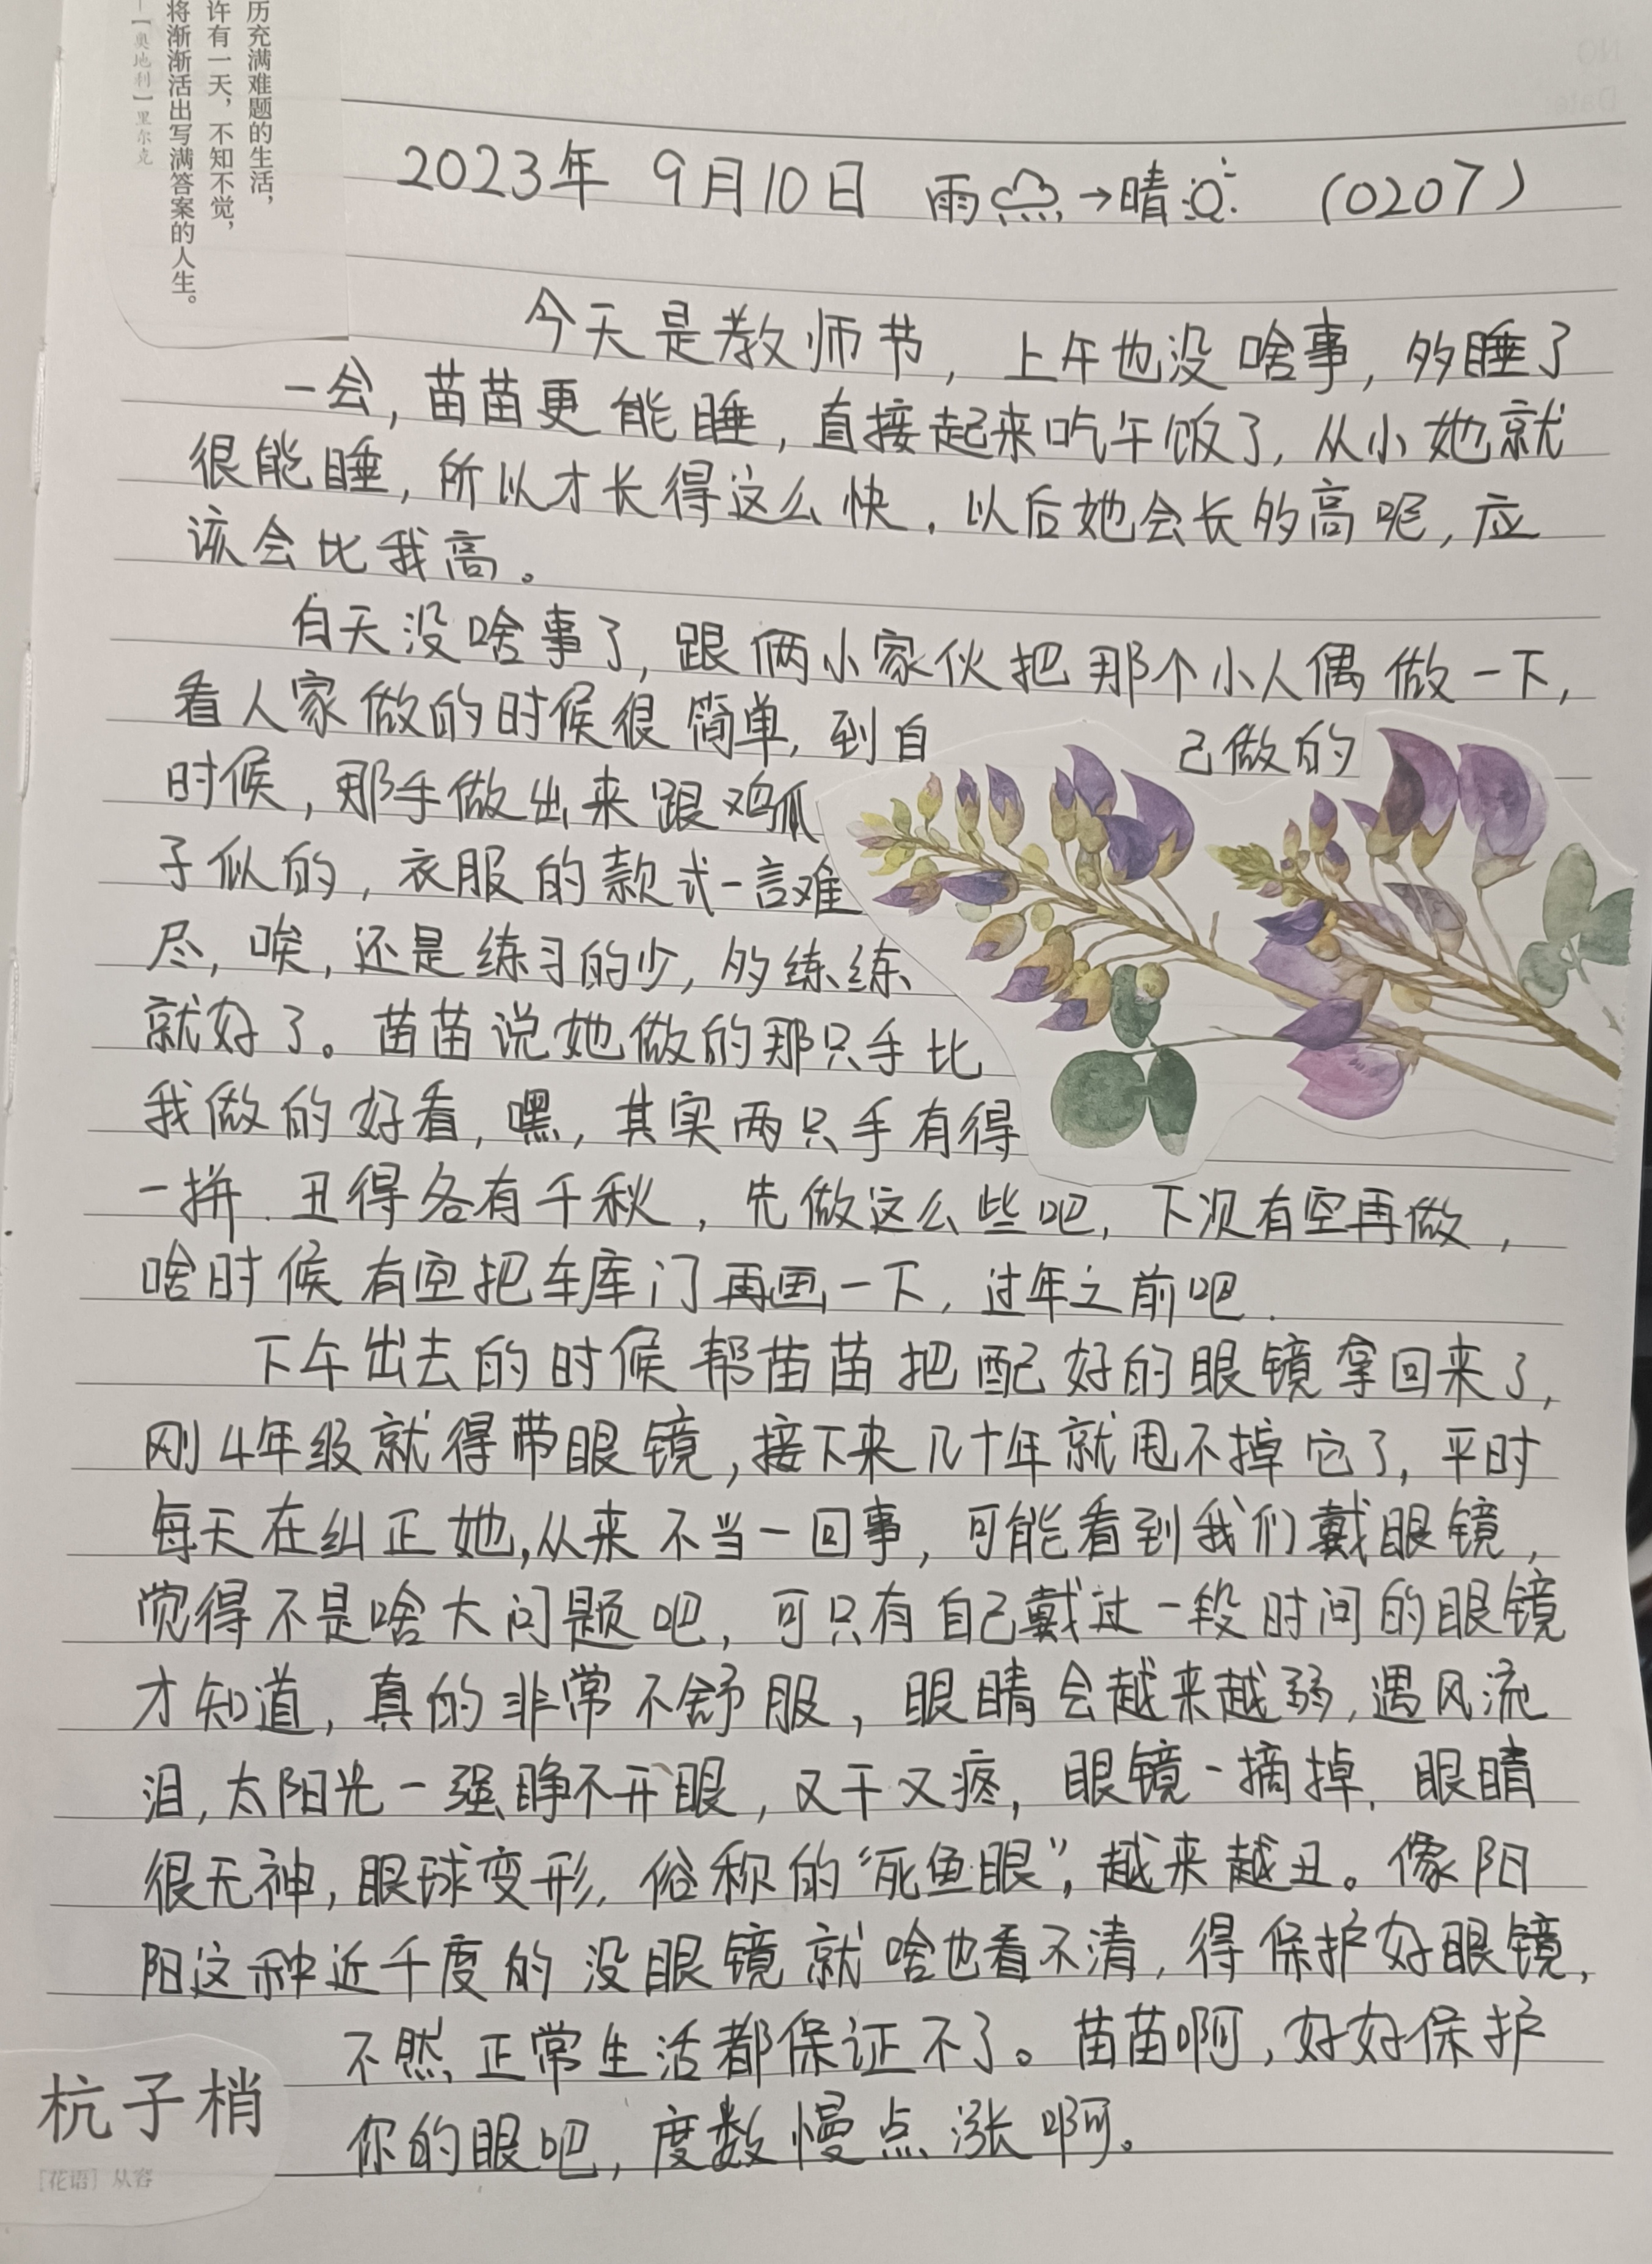 历充满难题的生活，
许有一天，不知不觉，
将渐渐活出写满答案的人生。
—［奥地利］里尔克
2023年 9月10日 雨→晴 (0207)
今天是教师节，上午也没啥事，多睡了
一会，苗苗更能睡，直接起来吃午饭了，从小她就
很能睡，所以才长得这么快，以后她会长的高呢，应
该会比我高。
白天没啥事了，跟俩小家伙把那个小人偶做一下，
看人家做的时候很简单，到自己做的
时候，那手做出来跟鸡爪
子似的，衣服的款式一言难
尽，唉，还是练习的少，多练练
就好了。苗苗说她做的那只手比
我做的好看，嘿，其实两只手有得
一拼．丑得各有千秋，先做这么些吧，下次有空再做，
啥时候有空把车库门再画一下，过年之前吧．
下午出去的时候帮苗苗把配好的眼镜拿回来了，
刚4年级就得带眼镜，接下来几十年就甩不掉它了，平时
每天在纠正她，从来不当一回事，可能看到我们戴眼镜，
觉得不是啥大问题吧，可只有自己戴过一段时间的眼镜
才知道，真的非常不舒服，眼睛会越来越弱，遇风流
泪，太阳光一强睁不开眼，又干又疼，眼镜一摘掉．眼睛
很无神，眼球变形，俗称的“死鱼眼”，越来越丑。像阳
阳这种近千度的没眼镜就啥也看不清，得保护好眼镜，
不然正常生活都保证不了。苗苗啊，好好保护
你的眼吧，度数慢点涨啊。
杭子梢
［花语］从容